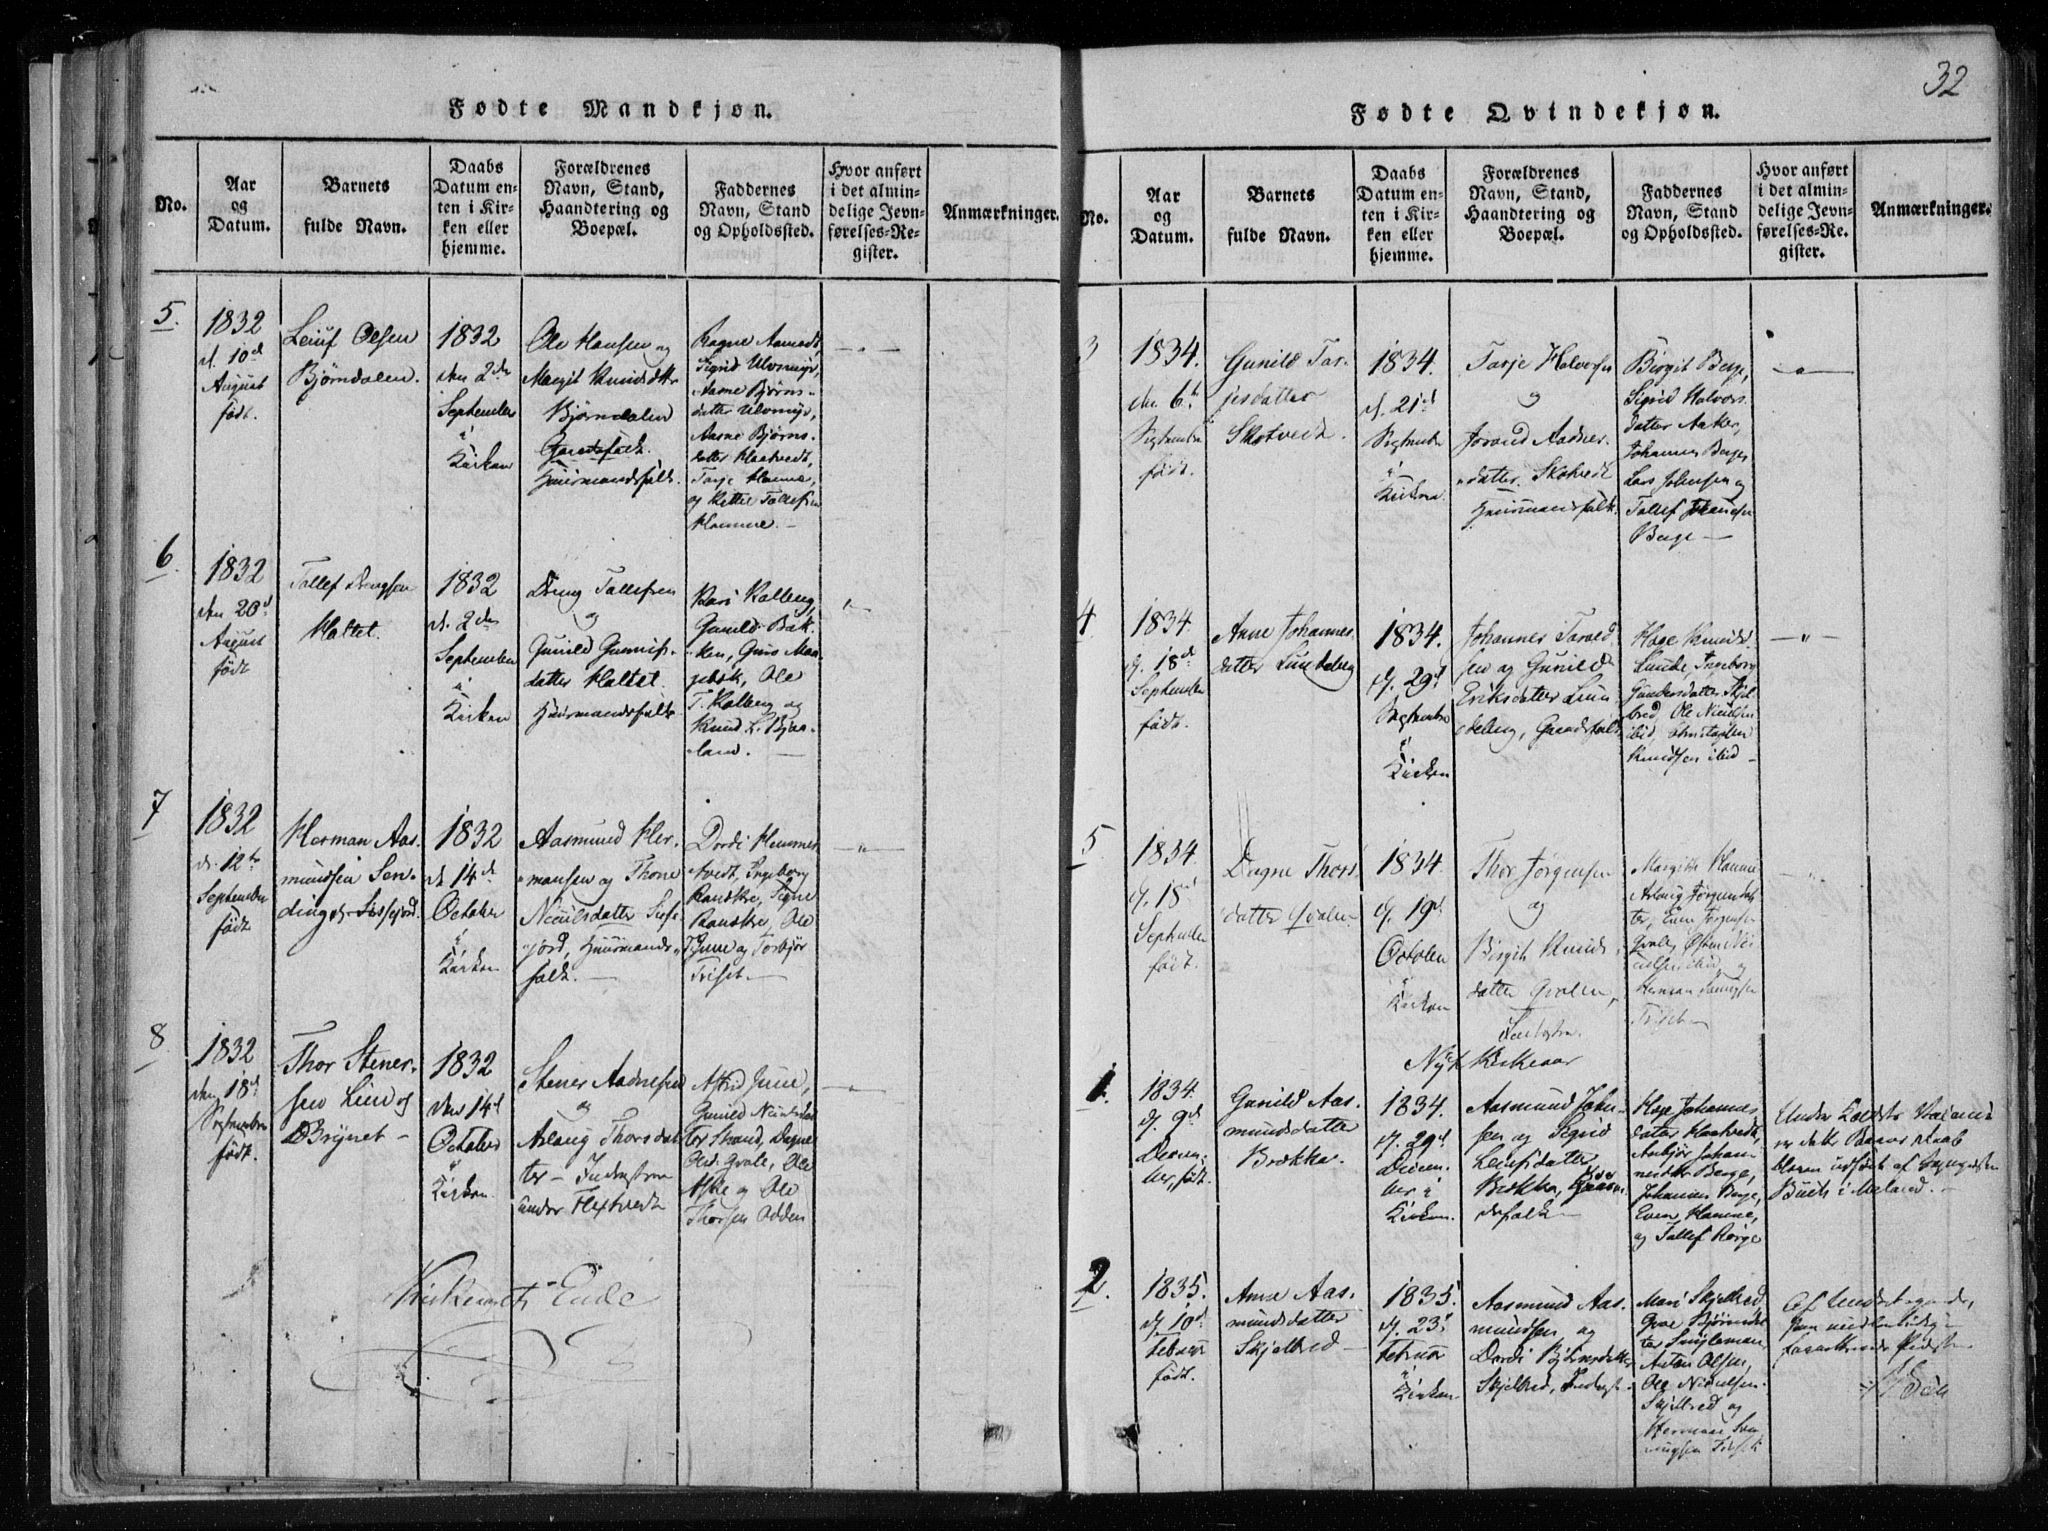 Fødte Mandkjøn.
No.
Aar
og
Datum.
Barnets
fulde Navn.
Daabs
Datum en-
ten i Kir-
ken eller
hjemme.
Forældrenes
Navn, Stand,
Haandtering og
Boepæl.
Faddernes
Navn, Stand
og Opholdssted.
Hvor anført
i det almin-
delige Jevn-
førelses-Re-
gister.
Anmærkninger.
5.
1832
d. 10d
August
født.
Leiuf Olsen
Bjørndalen.
1832
den 2den
September
i
Kirken
Ole Hansen og
Margit Knudsdtr
Bjørndalen
Huusmandsfolk.
Ragne Aamodt,
Sigrid Ulvmyr,
Aasne Bjørns-
datter Ulvmyr,
Aasne Bjørns-
datter Haatvedt,
Tarje Hamre,
og Kittil Tollefsen
Hamre.
6.
1832
den 20d
August
født
Tollef Drengsen
Holtet.
1832
d. 2den
September
i
Kirken
Dreng Tollefsen
og
Gunild Gunnifs-
datter Holtet.
Huusmandsfolk
Kari Kalberg,
Gunild Bak-
ken,
Ole
T. Kalberg og
Knud L. Bjaa-
land.
7
1832
d. 12te
September
født
Herman Aas-
mundsen
1832
d. 14de
October
i
Kirken
Aasmund Her-
mansen og Thone
Nirilsdatter
jord, Huusmands-
folk.
Dordi Hemmes-
tvedt, Ingeborg
Ranskre, Signe
Ranskre, Ole
Juve og Torbjør
Triset
8
1832
den 18d
September
født.
Thor Stener-
sen Lien
1832
den 14d
October
i
Kirken
Stener Aadnesen
og
Aslaug Thorsdat-
ter
under Flekstvedt
Juve,
Gunild
ter Strand, Dagne
Qvale, Ole
og Ole
Thorsen Odden
Kirkeaarets Ende
32
Fødte Qvindekjøn.
No.
Aar
og
Datum.
Barnets
fulde Navn.
Daabs
Datum en-
ten i Kir-
ken eller
hjemme.
Forældrenes
Navn, Stand,
Haandtering og
Boepæl.
Faddernes
Navn, Stand
og Opholdssted.
Hvor anført
i det almin-
delige Jevn-
førelses-Re-
gister.
Anmærkninger.
3
1834.
den 6te
September
født.
Gunild Tar-
jesdatter
Skotvedt.
1834.
d. 21d
September
i
Kirken.
Tarje Halvorsen
og
Jorand Aadnes-
datter Skotvedt
Huusmandsfolk.
Birgit Berge,
Sigrid Halvors-
datter Aaker,
Johannes Berge,
Lars Johnsen og
Tollef
Berge
4
1834.
d. 18de
September
født.
Anne Johannes-
datter Lundeberg
1834.
d. 29d
September
i
Kirken
Johannes Tarald-
sen og Gunild
Eriksdatter Lun-
deberg, Gaardsfolk
Hæge Knuds.
Lunde, Ingeborg
Gundersdatter Skjel-
bred, Ole Nirilsen
ibid
Knudsen ibid
5
1834.
d. 18d
September
født.
Dagne Thors-
datter Qvalen
1834.
d. 19d
October
i
Kirken
Thor Jørgensen
og
Birgit Knuds-
datter Qvalen,
Margith Hamre
Aslaug Jørgensdat-
ter, Even Jørgensen
Qvale, Østen Ni-
rilsen ibid og
Herman
Triset
Nyt Kirkeaar
1.
1834.
d. 9d
Decem-
ber, født.
Gunild Aas-
mundsdatter
Brokka.
1834.
d. 29d
Decem-
ber i
Kirken.
Aasmund John-
sen og Sigrid
Leiufsdatter
Brokka, Gaar-
dsfolk
Hæge Johannes-
datter Haatvedt,
Anbjør Johan-
nesdatter Berge,
Johannes Berge,
Even Hamre,
og Tollef Rørge
Under
er dette Barns Daab
bleven udført af
Buch i Mland.
2.
1835.
d. 10d
Februar
født.
Anne Aas-
mundsdatter
Skjelbred
1835.
d. 23d
Februar
i
Kirken
Aasmund Aas-
mundsen og
Dordi Bjørnsdatter
Skjelbred,
Mari Skjelbred,
Groe Bjørnsdat-
ter
Anton Olsen,
Ole Nirilsen
Skjelbred og
Herman
Triset
Af Undertegnede,